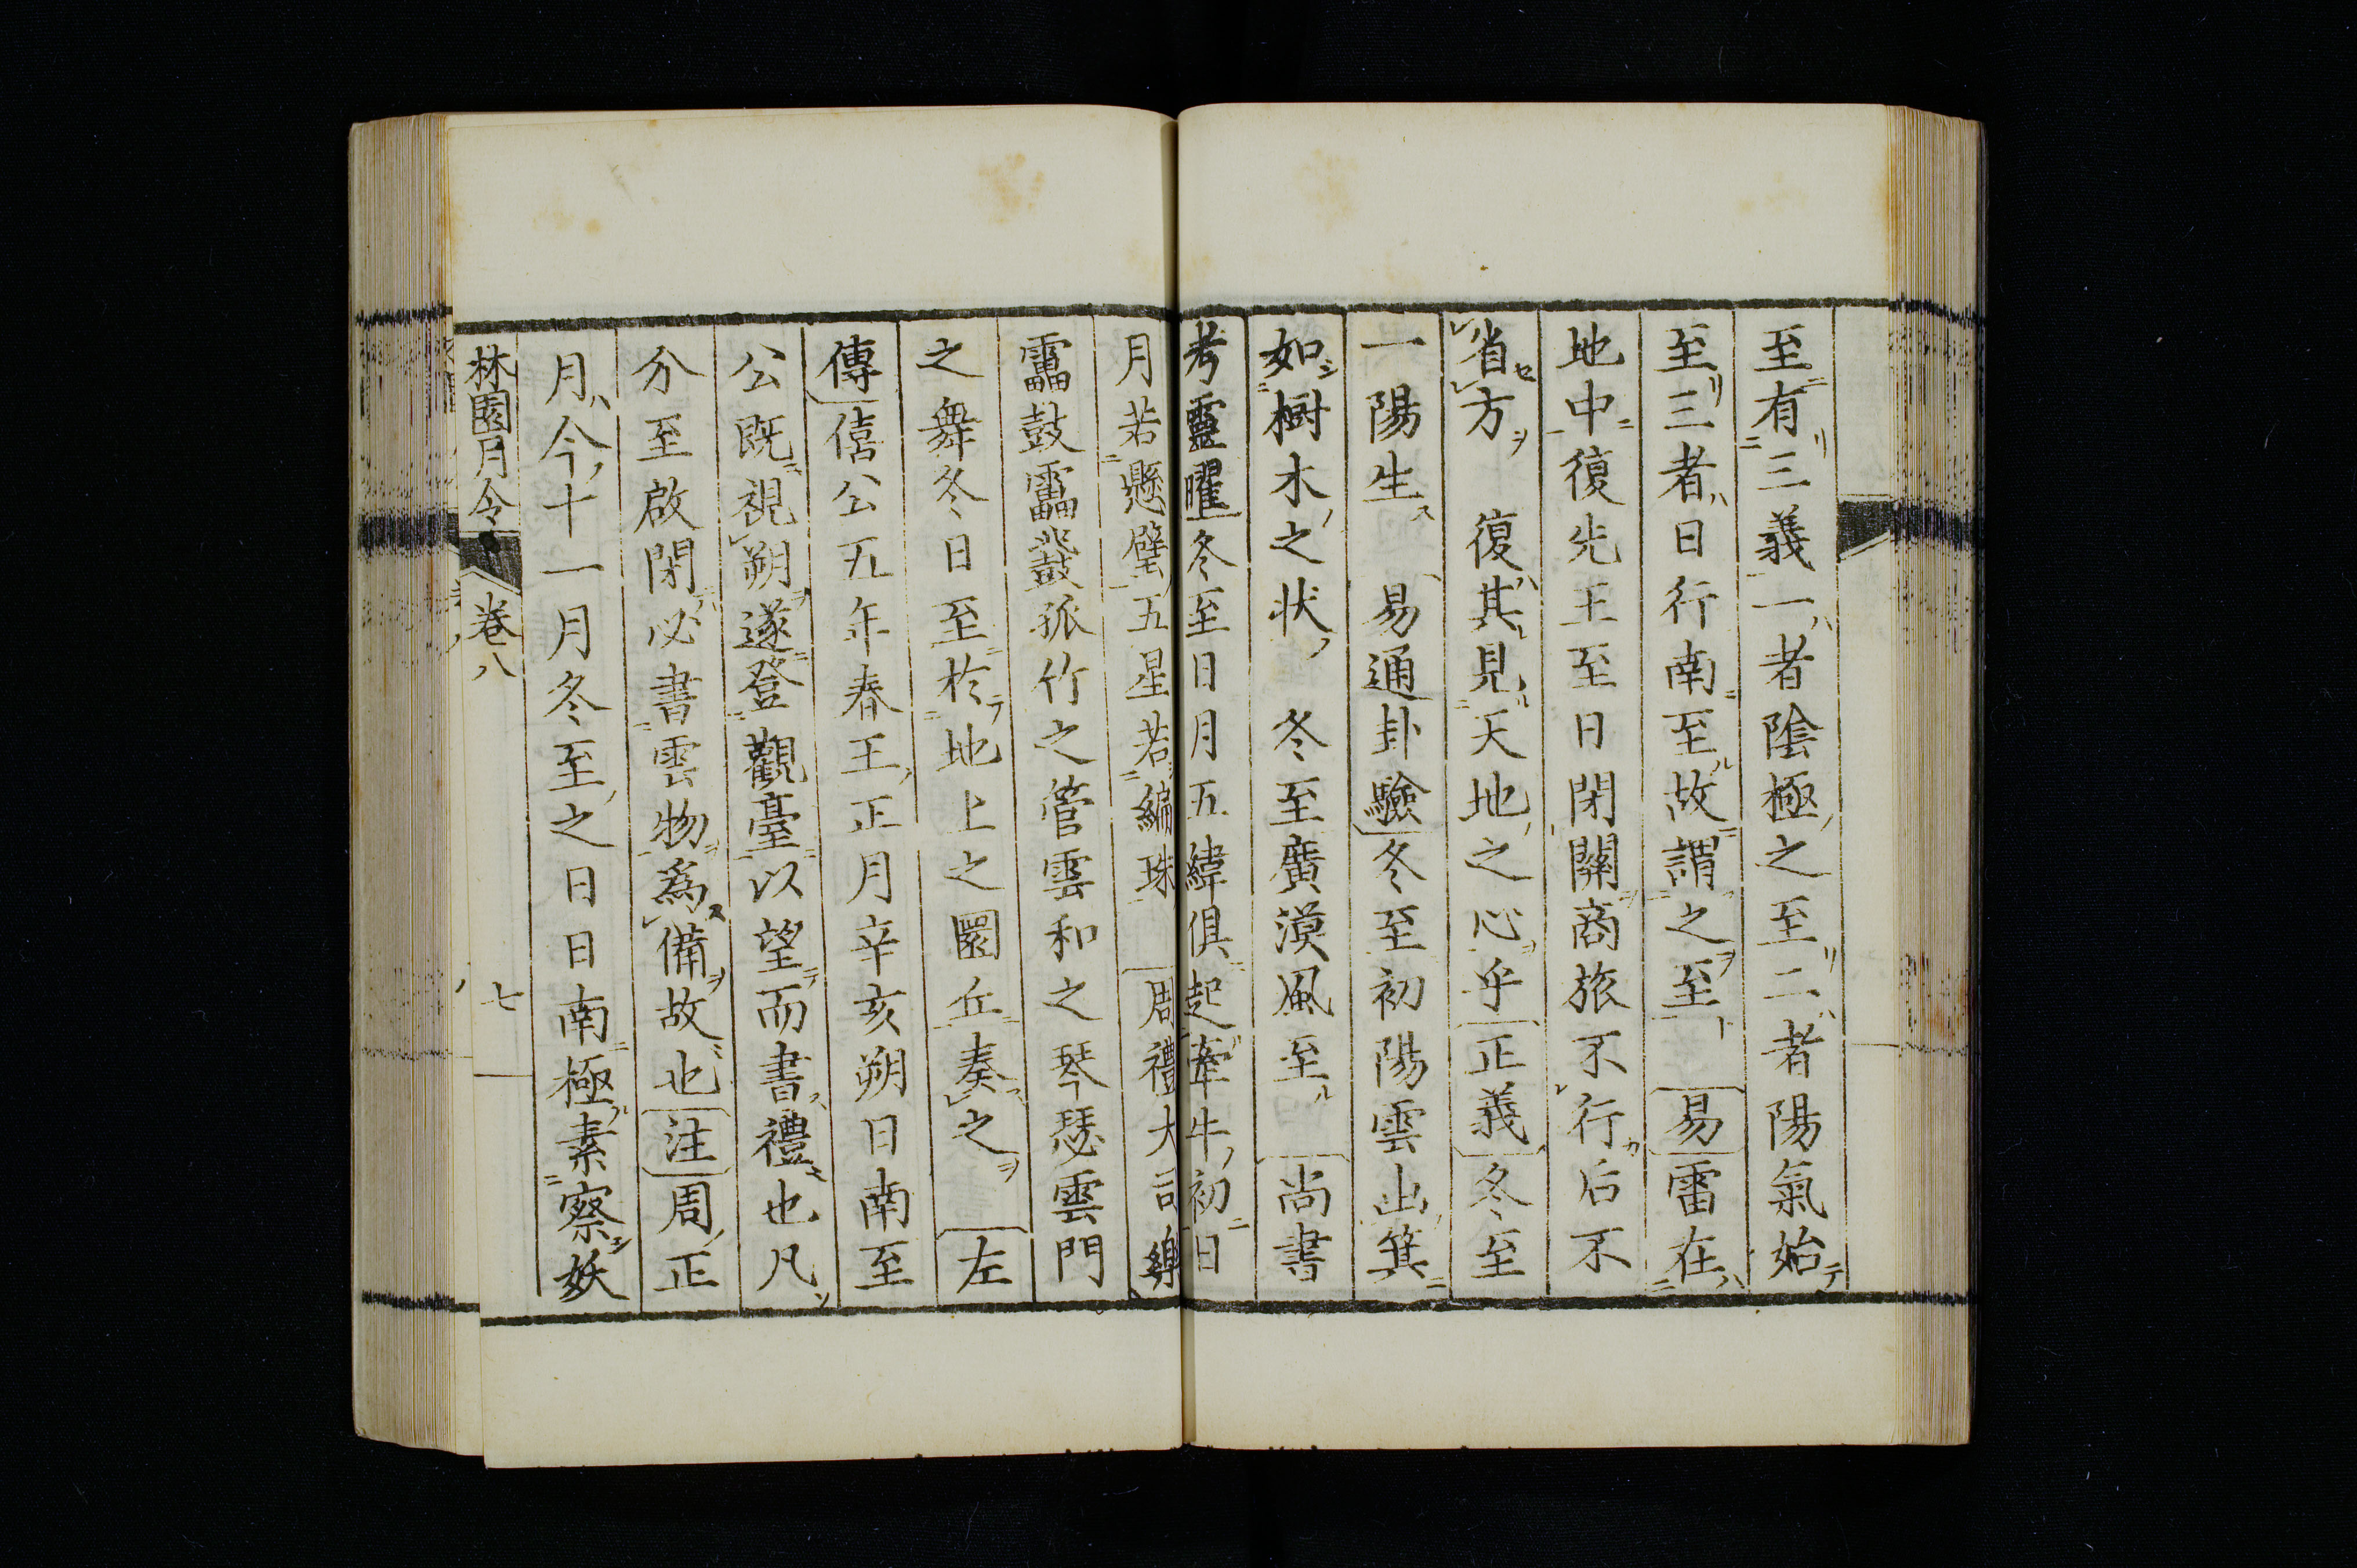 至有三義一者陰極之至二者陽氣始
至三者日行南至故謂之至 易雷在
地中復先王至日閉關商旅不行后不
省方 復其見天地之心乎正義冬至
一陽生 易通卦驗冬至初陽雲出箕
如樹木之状 冬至廣漠風至 尚書
考靈曜冬至日月五緯俱起牽牛初日
月若懸璧五星若編珠 周禮大司樂
靁鼓靁鼗孤竹之管雲和之琴瑟雲門
之舞冬日至於地上之圜丘奏之 左
傳僖公五年春王正月辛亥朔日南至
公既視朔遂登觀臺以望而書禮也凡
分至啟閉必書雲物爲備故也注周正
月今十一月冬至之日日南極素察妖
林園月令 卷八 七